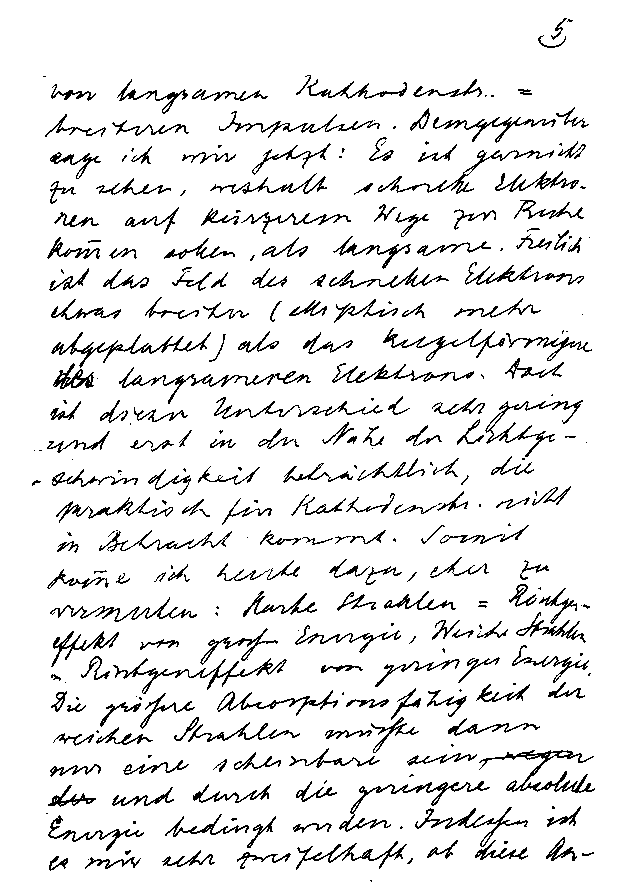 5
von langsamen Kathodenstr.. =
breiteren Impulsen. Demgegenüber
sage ich mir jetzt: Es ist garnicht
zu sehen, weshalb schnelle Elektro-
nen auf kürzerem Wege zur Ruhe
kom̄en sollen, als langsame. Freilich
ist das Feld des schnellen Elektrons
etwas breiter (elliptisch mehr
abgeplattet) als das kugelförmigere
des langsameren Elektrons. Doch
ist dieser Unterschied sehr gering
und erst in der Nähe der Lichtge-
schwindigkeit beträchtlich, die
praktisch für Kathodenstr. nicht
in Betracht kommt. Somit
kom̄e ich heute dazu, eher zu
vermuten: Harte Strahlen = Röntgen-
effekt von großer Energie, Weiche Strahlen
= Röntgeneffekt von geringer Energie.
Die größere Absorptionsfähigkeit der
weichen Strahlen müßte dann
nur eine scheinbare sein, wegen
der und durch die geringere absolute
Energie bedingt werden. Indessen ist
es mir sehr zweifelhaft, ob diese An-